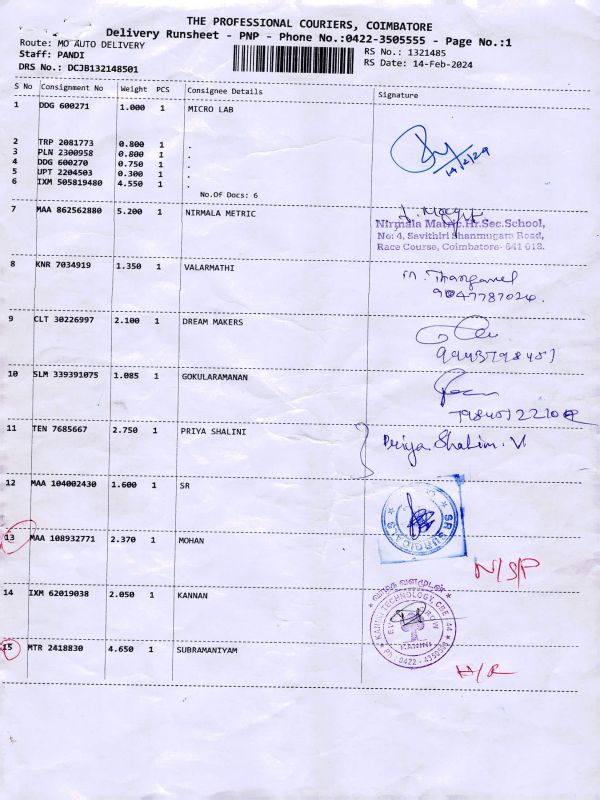 THE PROFESSIONAL COURIERS, COIMBATORE
Delivery Runsheet - PNP - Phone No.:0422-3505555 - Page No.:1
Route: MO AUTO DELIVERY
RS No.: 1321485
Staff: PANDI
RS Date: 14-Feb-2024
DRS No.: DCJB132148501
S No Consignment No Weight PCS Consignee Details Signature
1 DDG 600271 1.000 1 MICRO LAB
2 TRP 2081773 0.800 1 .
3 PLN 2300958 0.800 1 .
4 DDG 600270 0.750 1 .
5 UPT 2204503 0.300 1 .
6 IXM 505819480 4.550 1 .
14/2/24
No.Of Docs: 6
7 MAA 862562880 5.200 1 NIRMALA METRIC
Nirmala Matric.Hr.Sec.School,
No: 4, Savithiri Shanmugam Road,
Race Course, Coimbatore- 641 018.
8 KNR 7034919 1.350 1 VALARMATHI
M. Thangamel
9047787026.
9 CLT 30226997 2.100 1 DREAM MAKERS
9943798451
10 SLM 339391075 1.085 1 GOKULARAMANAN
11 TEN 7685667 2.750 1 PRIYA SHALINI
Priya Shalini. V
12 MAA 104002430 1.600 1 SR
13 MAA 108932771 2.370 1 MOHAN
N/S/P
14 IXM 62019038 2.050 1 KANNAN
வாழ்க வளமுடன்
15 MTR 2418830 4.650 1 SUBRAMANIYAM
H/R